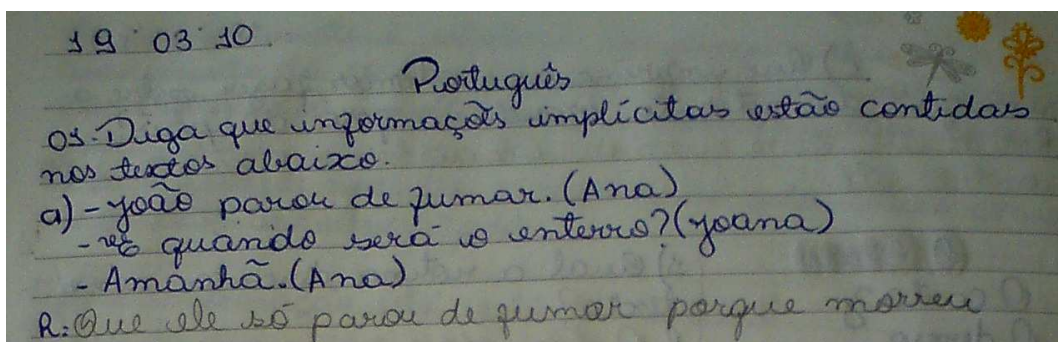 19 03 10
Português
01. Diga que informações implícitas estão contidas
nos textos abaixo.
a) - João parou de fumar. (Ana)
- E quando será o enterro? (Joana)
- Amanhã. (Ana)
R: Que ele só parou de fumar porque morreu